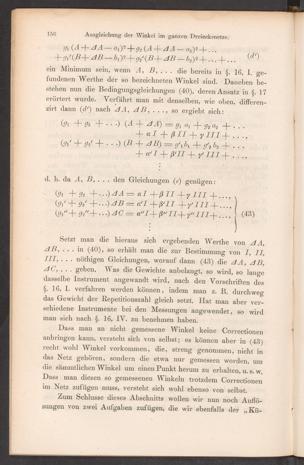 156 Ausgleichung der Winkel im ganzen Dreiecksnetze.
g₁(A + ΔA — a₁)² + g₂(A + ΔA — a₂)² + ...
+ g₁'(B + ΔB — b₁)² + g₂'(B + ΔB — b₂)² + ... + ... (d')
ein Minimum sein, wenn A, B, ... die bereits in § 16, I. ge-
fundenen Werthe der so bezeichneten Winkel sind. Daneben be-
stehen nun die Bedingungsgleichungen (40), deren Ansatz in § 17
erörtert wurde. Verfährt man mit denselben, wie oben, differen-
zirt dann (d') nach ΔA, ΔB, ..., so ergiebt sich:
(g₁ + g₂ + ...) (A + ΔA) = g₁ a₁ + g₂ a₂ + ...
+ α I + β II + γ III + ...
(g₁' + g₂' + ...) (B + ΔB) = g'₁ b₁ + g'₂ b₂ + ...
+ α' I + β' II + γ' III + ...
⋮
d. h. da A, B, ... den Gleichungen (c) genügen:
(g₁ + g₂ + ...) ΔA = α I + β II + γ III + ...,
(g₁' + g₂' + ...) ΔB = α' I + β' II + γ' III + ...,
(g₁'' + g₂'' + ...) ΔC = α'' I + β'' II + γ'' III + ..., (43)
⋮
Setzt man die hieraus sich ergebenden Werthe von ΔA,
ΔB, ... in (40), so erhält man die zur Bestimmung von I, II,
III, ... nöthigen Gleichungen, worauf dann (43) die ΔA, ΔB,
ΔC, ... geben. Was die Gewichte anbelangt, so wird, so lange
dasselbe Instrument angewandt wird, nach den Vorschriften des
§ 16, I. verfahren werden können, indem man z. B. durchweg
das Gewicht der Repetitionszahl gleich setzt. Hat man aber ver-
schiedene Instrumente bei den Messungen angewendet, so wird
man sich nach § 16, IV. zu benehmen haben.
Dass man an nicht gemessene Winkel keine Correctionen
anbringen kann, versteht sich von selbst; es können aber in (43)
recht wohl Winkel vorkommen, die, streng genommen, nicht in
das Netz gehören, sondern die etwa nur gemessen worden, um
die sämmtlichen Winkel um einen Punkt herum zu erhalten, u. s. w.
Dass man diesen so gemessenen Winkeln trotzdem Correctionen
im Netz zufügen muss, versteht sich wohl ebenso von selbst.
Zum Schlusse dieses Abschnitts wollen wir nun noch Auflö-
sungen von zwei Aufgaben zufügen, die wir ebenfalls der „Kü-